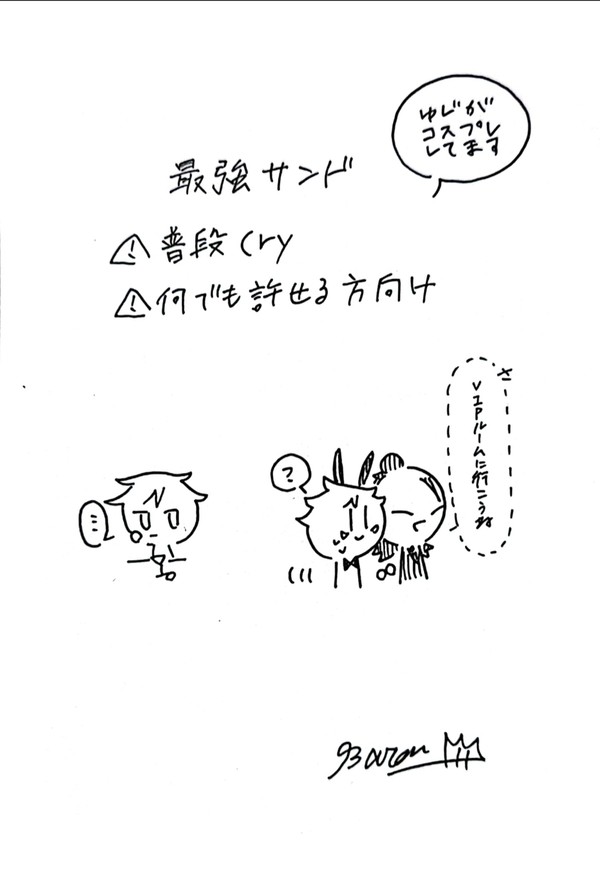 最強サンド
ゆじが
コスプレ
してます
⚠普段Cry
⚠何でも許せる方向け
…
?
さ
VIPルームに行こうね
Baron